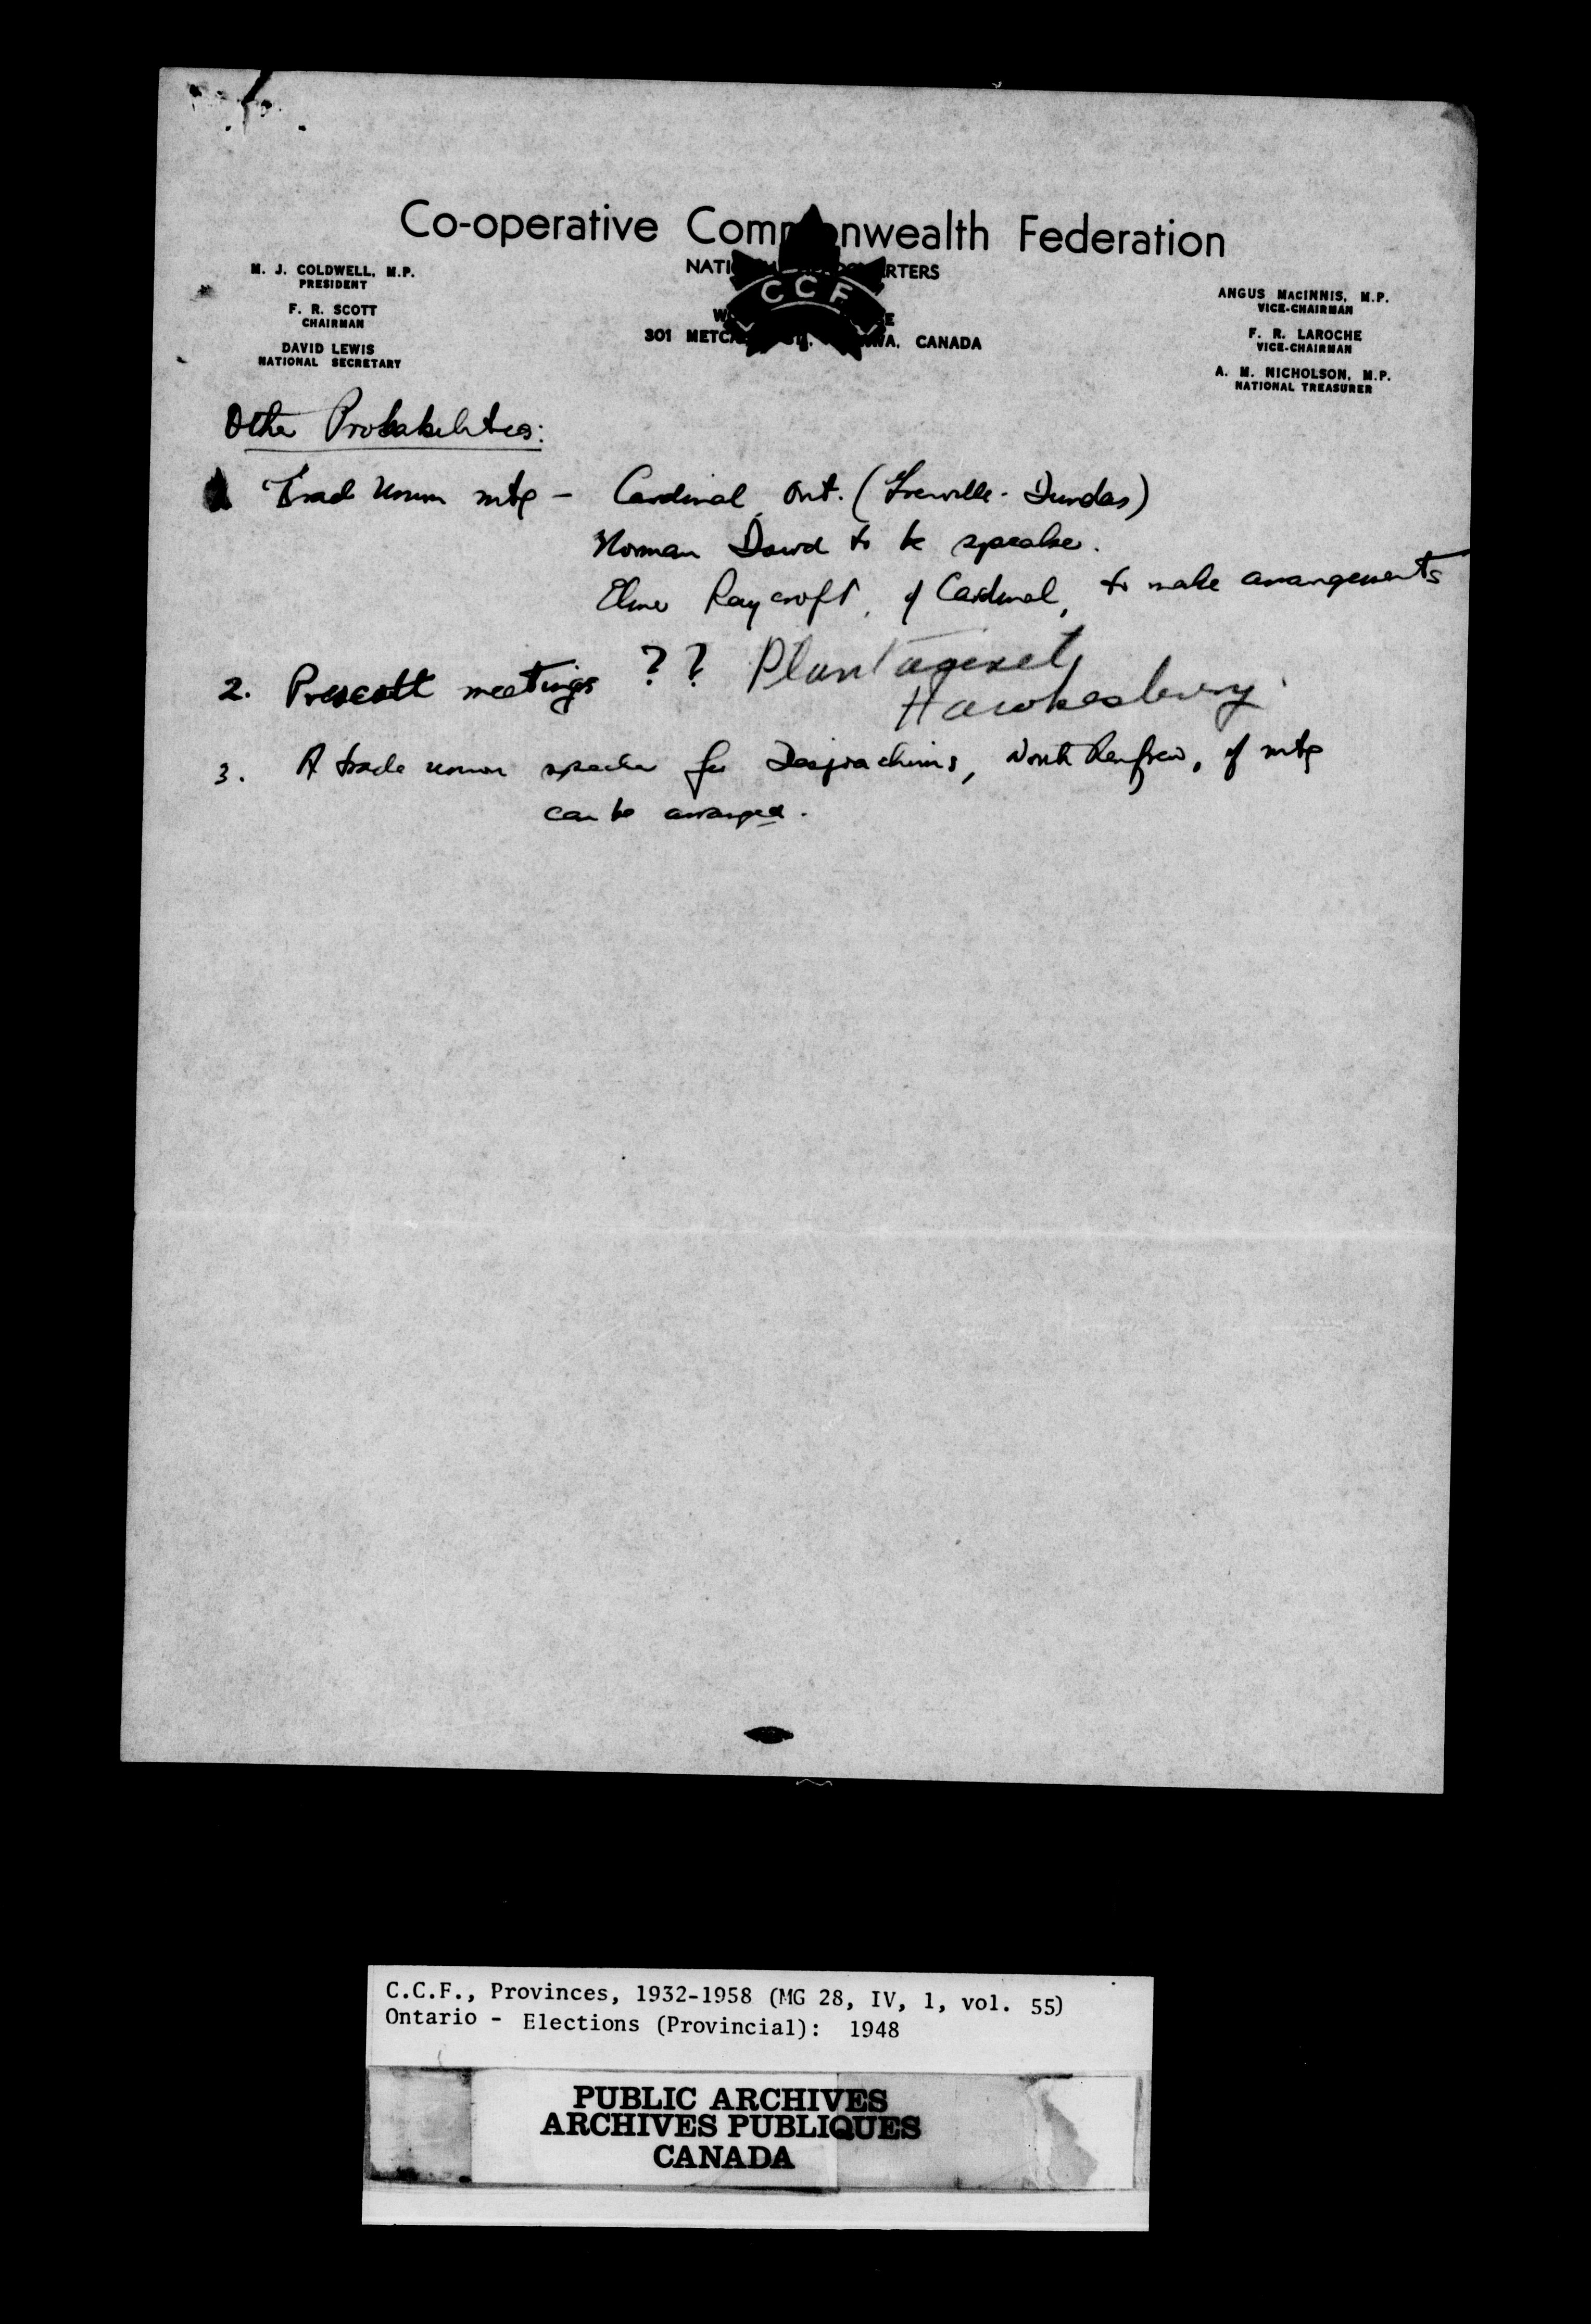 Co-operative Commonwealth Federation
NATIONAL HEADQUARTERS
301 METCALFE ST. OTTAWA, CANADA
M. J. COLDWELL, M.P.
PRESIDENT
F. R. SCOTT
CHAIRMAN
DAVID LEWIS
NATIONAL SECRETARY
CCF
ANGUS MACINNIS, M.P.
VICE-CHAIRMAN
F. R. LAROCHE
VICE-CHAIRMAN
A. M. NICHOLSON, M.P.
NATIONAL TREASURER
Other Probabilities:
Trade Union mtg - Cardinal, Ont. (Grenville - Dundas)
Norman Dowd to be speaker.
Elmer Raycroft, of Cardinal, to make arrangements
2. Prescott meetings ?? Plantagenet,
Hawkesbury.
3. A trade union speaker for Desjoachims, North Renfrew, if mtg
can be arranged.
C.C.F., Provinces, 1932-1958 (MG 28, IV, 1, vol. 55)
Ontario - Elections (Provincial): 1948
PUBLIC ARCHIVES
ARCHIVES PUBLIQUES
CANADA